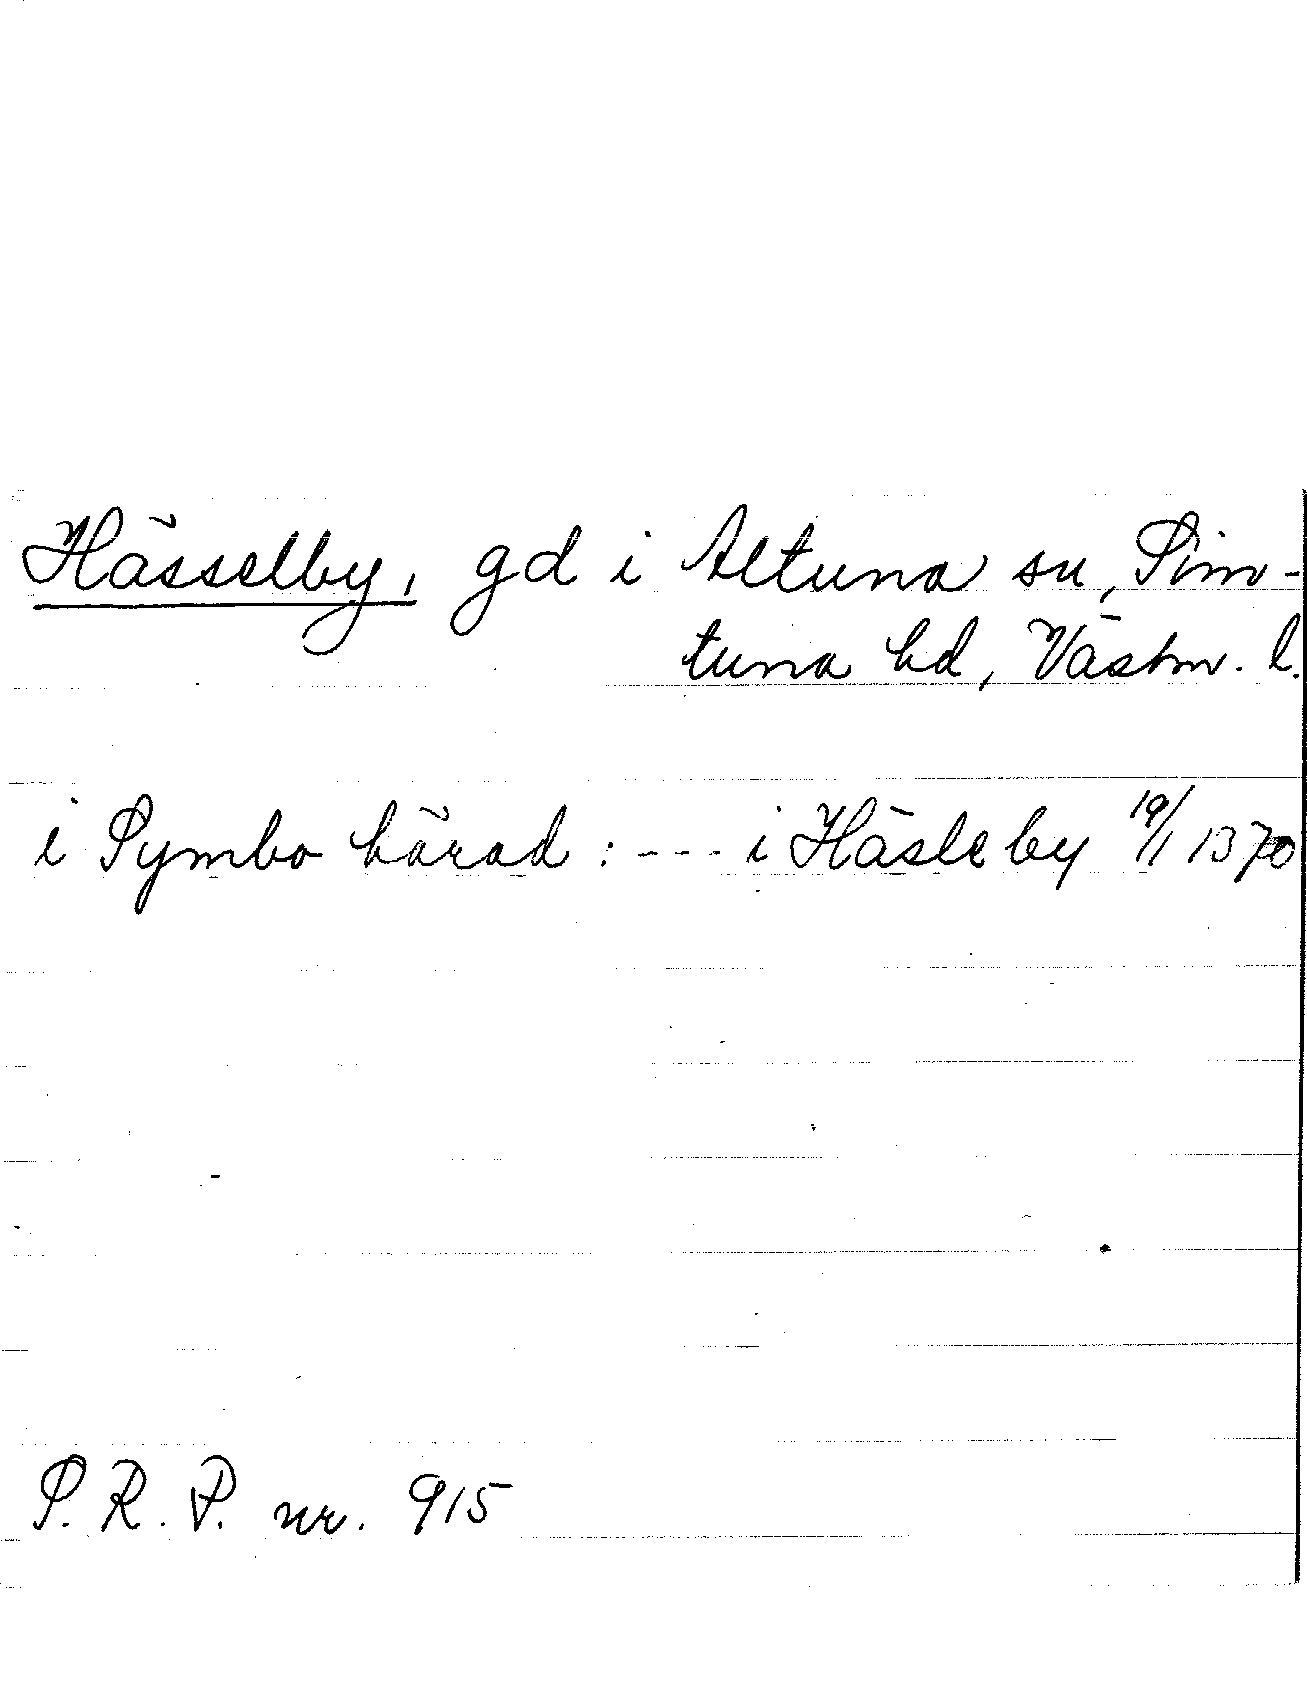 Hässelby, gd i Altuna sn, Sim-
tuna hd, Västm. l.
i Symbo härad : --- i Häsleby 19/1 1370
S. R. P. nr. 915